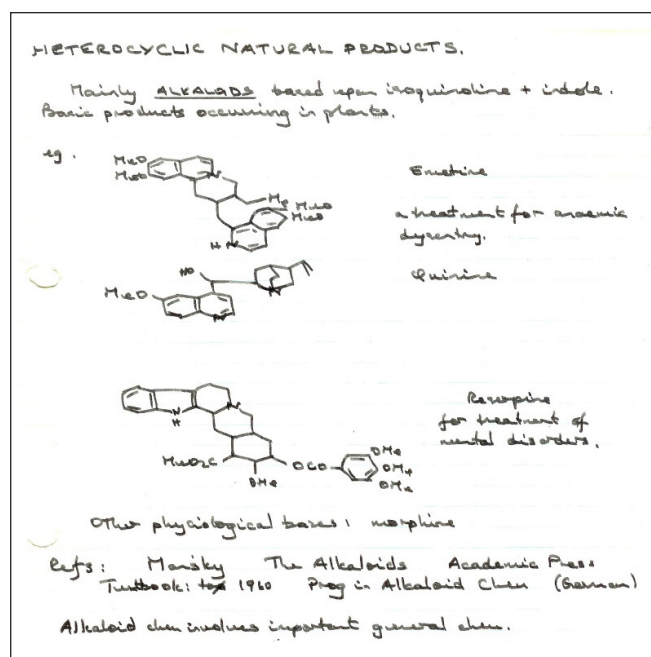 HETEROCYCLIC NATURAL PRODUCTS.
Mainly ALKALOIDS based upon isoquinoline + indole.
Basic products occurring in plants.
eg.
MeO
MeO
N
Me
MeO
MeO
HN
Emetine
a treatment for anaemic
dysentry.
HO
N
MeO
N
Quinine
N
H
N
MeO2C
OMe
OCO
OMe
OMe
OMe
Reserpine
for treatment of
mental disorders.
Other physiological bases: morphine
Refs: Mansky The Alkaloids Academic Press
Textbook: to 1960 Prog in Alkaloid Chem (German)
Alkaloid chem involves important general chem.